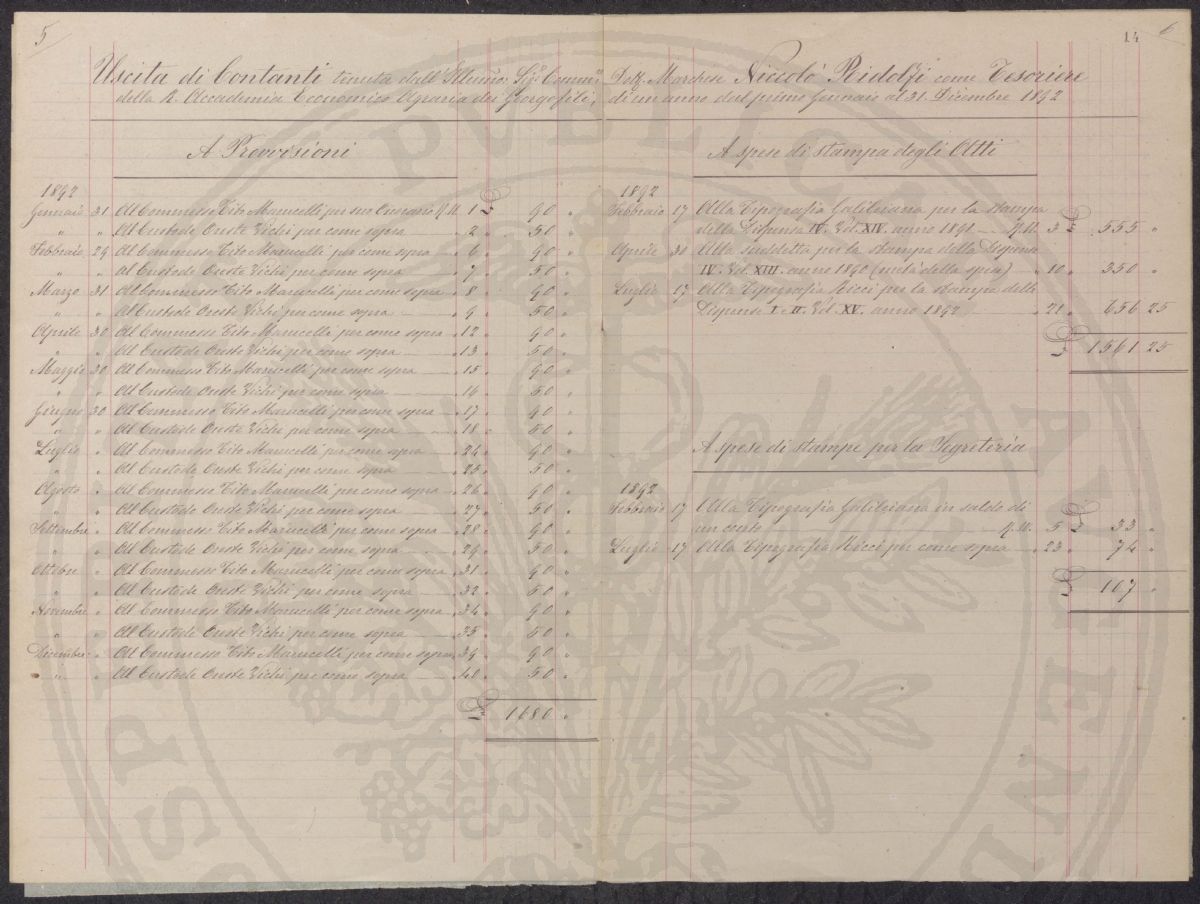 5
14 6
Uscita di Contanti tenuta dall' Illmo: Sigr. Comm: Dott. Marchese Niccolò Ridolfi come Tesoriere
della R. Accademia Economico Agraria dei Georgofili, di un anno dal primo Gennaio al 31. Dicembre 1892
A Provvisioni
1892
Gennaio 31 Al Commesso Tito Marucelli per suo Onorario N. M. 1 £ 90 "
" " Al Custode Oreste Vichi per come sopra " 2 " 50 "
Febbraio 29 Al Commesso Tito Marucelli per come sopra " 6 " 90 "
" " Al Custode Oreste Vichi per come sopra " 7 " 50 "
Marzo 31 Al Commesso Tito Marucelli per come sopra " 8 " 90 "
" " Al Custode Oreste Vichi per come sopra " 9 " 50 "
Aprile 30 Al Commesso Tito Marucelli per come sopra " 12 " 90 "
" " Al Custode Oreste Vichi per come sopra " 13 " 50 "
Maggio 30 Al Commesso Tito Marucelli per come sopra " 15 " 90 "
" " Al Custode Oreste Vichi per come sopra " 16 " 50 "
Giugno 30 Al Commesso Tito Marucelli per come sopra " 17 " 90 "
" " Al Custode Oreste Vichi per come sopra " 18 " 50 "
Luglio " Al Commesso Tito Marucelli per come sopra " 24 " 90 "
" " Al Custode Oreste Vichi per come sopra " 25 " 50 "
Agosto " Al Commesso Tito Marucelli per come sopra " 26 " 90 "
" " Al Custode Oreste Vichi per come sopra " 27 " 50 "
Settembre " Al Commesso Tito Marucelli per come sopra " 28 " 90 "
" " Al Custode Oreste Vichi per come sopra " 29 " 50 "
Ottobre " Al Commesso Tito Marucelli per come sopra " 31 " 90 "
" " Al Custode Oreste Vichi per come sopra " 32 " 50 "
Novembre " Al Commesso Tito Marucelli per come sopra " 34 " 90 "
" " Al Custode Oreste Vichi per come sopra " 35 " 50 "
Dicembre " Al Commesso Tito Marucelli per come sopra " 39 " 90 "
" " Al Custode Oreste Vichi per come sopra " 40 " 50 "
£ 1680 "
A spese di stampa degli Atti
1892
Febbraio 17 Alla Tipografia Galileiana per la stampa
della Dispensa IV. Vol. XIV. anno 1891 N. M. 3 £ 555 "
Aprile 30 Alla suddetta per la stampa della Dispensa
IV. Vol. XIII. anno 1890 (metà della spesa) " 10 " 350 "
Luglio 17 Alla Tipografia Ricci per la stampa delle
Dispense I. II. Vol. XV. anno 1892 " 21 " 656 25
£ 1561 25
A spese di stampe per la Segreteria
1892
Febbraio 17 Alla Tipografia Galileiana in saldo di
un conto N. M. 5 £ 33 "
Luglio 17 Alla Tipografia Ricci per come sopra " 23 " 74 "
£ 107 "